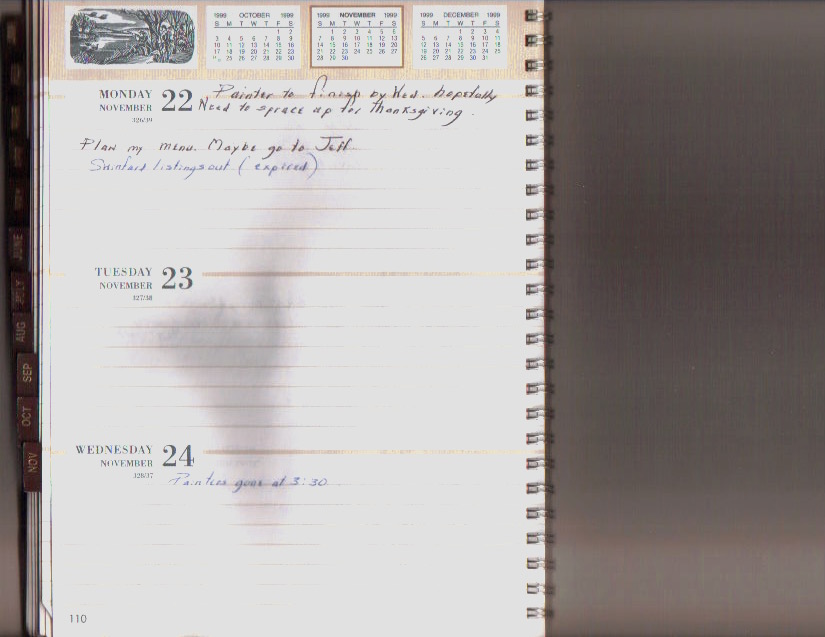 1999 OCTOBER 1999
S M T W T F S
1 2
3 4 5 6 7 8 9
10 11 12 13 14 15 16
17 18 19 20 21 22 23
25 26 27 28 29 30
1999 NOVEMBER 1999
S M T W T F S
1 2 3 4 5 6
7 8 9 10 11 12 13
14 15 16 17 18 19 20
21 22 23 24 25 26 27
28 29 30
1999 DECEMBER 1999
S M T W T F S
1 2 3 4
5 6 7 8 9 10 11
12 13 14 15 16 17 18
19 20 21 22 23 24 25
26 27 28 29 30 31
MONDAY 22
NOVEMBER
326/39
Painter to finish by Wed. hopefully
Need to spruce up for Thanksgiving.
Plan my menu. Maybe go to Jeff.
listings out (expired)
TUESDAY 23
NOVEMBER
327/38
WEDNESDAY 24
NOVEMBER
328/37
Painters gone at 3:30
JUNE
JULY
AUG
SEP
OCT
NOV
110